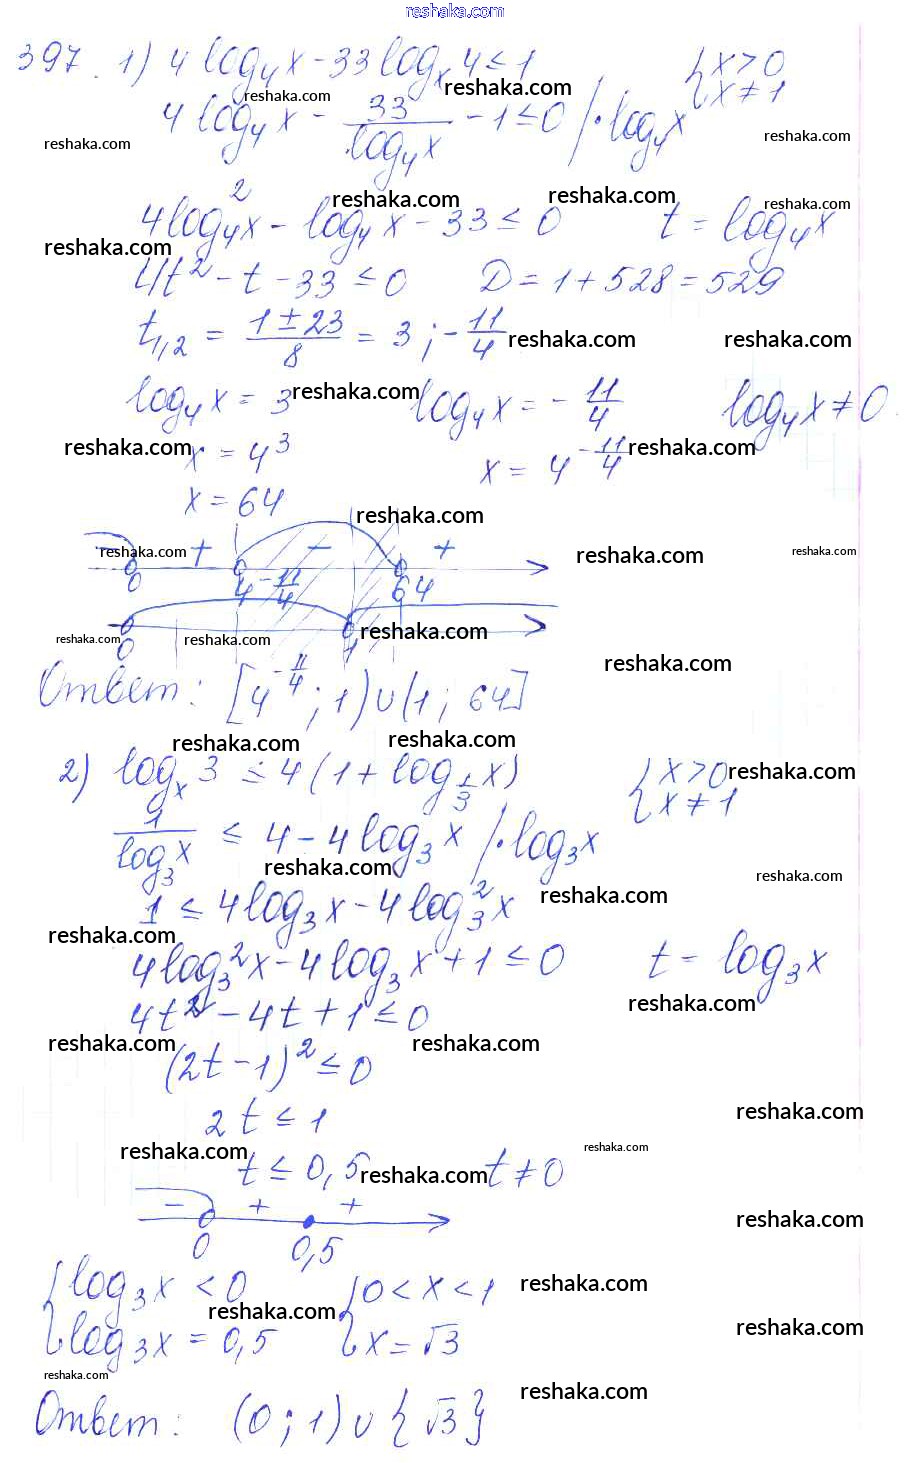 reshaka.com
397. 1) 4 log₄x - 33 logₓ4 ≤ 1 { x > 0
reshaka.com reshaka.com { x ≠ 1
4 log₄x - 33/log₄x - 1 ≤ 0 / · log₄x
reshaka.com reshaka.com
4 log₄²x - log₄x - 33 ≤ 0 t = log₄x
reshaka.com reshaka.com reshaka.com
reshaka.com
4t² - t - 33 ≤ 0 D = 1 + 528 = 529
t₁,₂ = (1 ± 23)/8 = 3 ; -11/4
reshaka.com reshaka.com
log₄x = 3 log₄x = -11/4 log₄x ≠ 0.
reshaka.com
x = 4³ x = 4^(-11/4)
reshaka.com reshaka.com
x = 64
reshaka.com
- + - +
reshaka.com reshaka.com reshaka.com
0 4^(-11/4) 64
reshaka.com reshaka.com reshaka.com
0 1
reshaka.com
Ответ: [4^(-11/4) ; 1) ∪ (1 ; 64]
reshaka.com reshaka.com
2) logₓ3 ≤ 4(1 + log_(1/3) x) { x > 0
reshaka.com { x ≠ 1
1/log₃x ≤ 4 - 4 log₃x / · log₃x
reshaka.com reshaka.com
1 ≤ 4 log₃x - 4 log₃²x
reshaka.com
reshaka.com
4 log₃²x - 4 log₃x + 1 ≤ 0 t = log₃x
reshaka.com
4t² - 4t + 1 ≤ 0
reshaka.com reshaka.com
(2t - 1)² ≤ 0
2t ≤ 1
reshaka.com
reshaka.com reshaka.com
t ≤ 0,5 t ≠ 0
reshaka.com
- + +
reshaka.com
0 0,5
{ log₃x < 0 { 0 < x < 1
reshaka.com reshaka.com
{ log₃x = 0,5 { x = √3
reshaka.com
reshaka.com reshaka.com
Ответ: (0 ; 1) ∪ {√3}